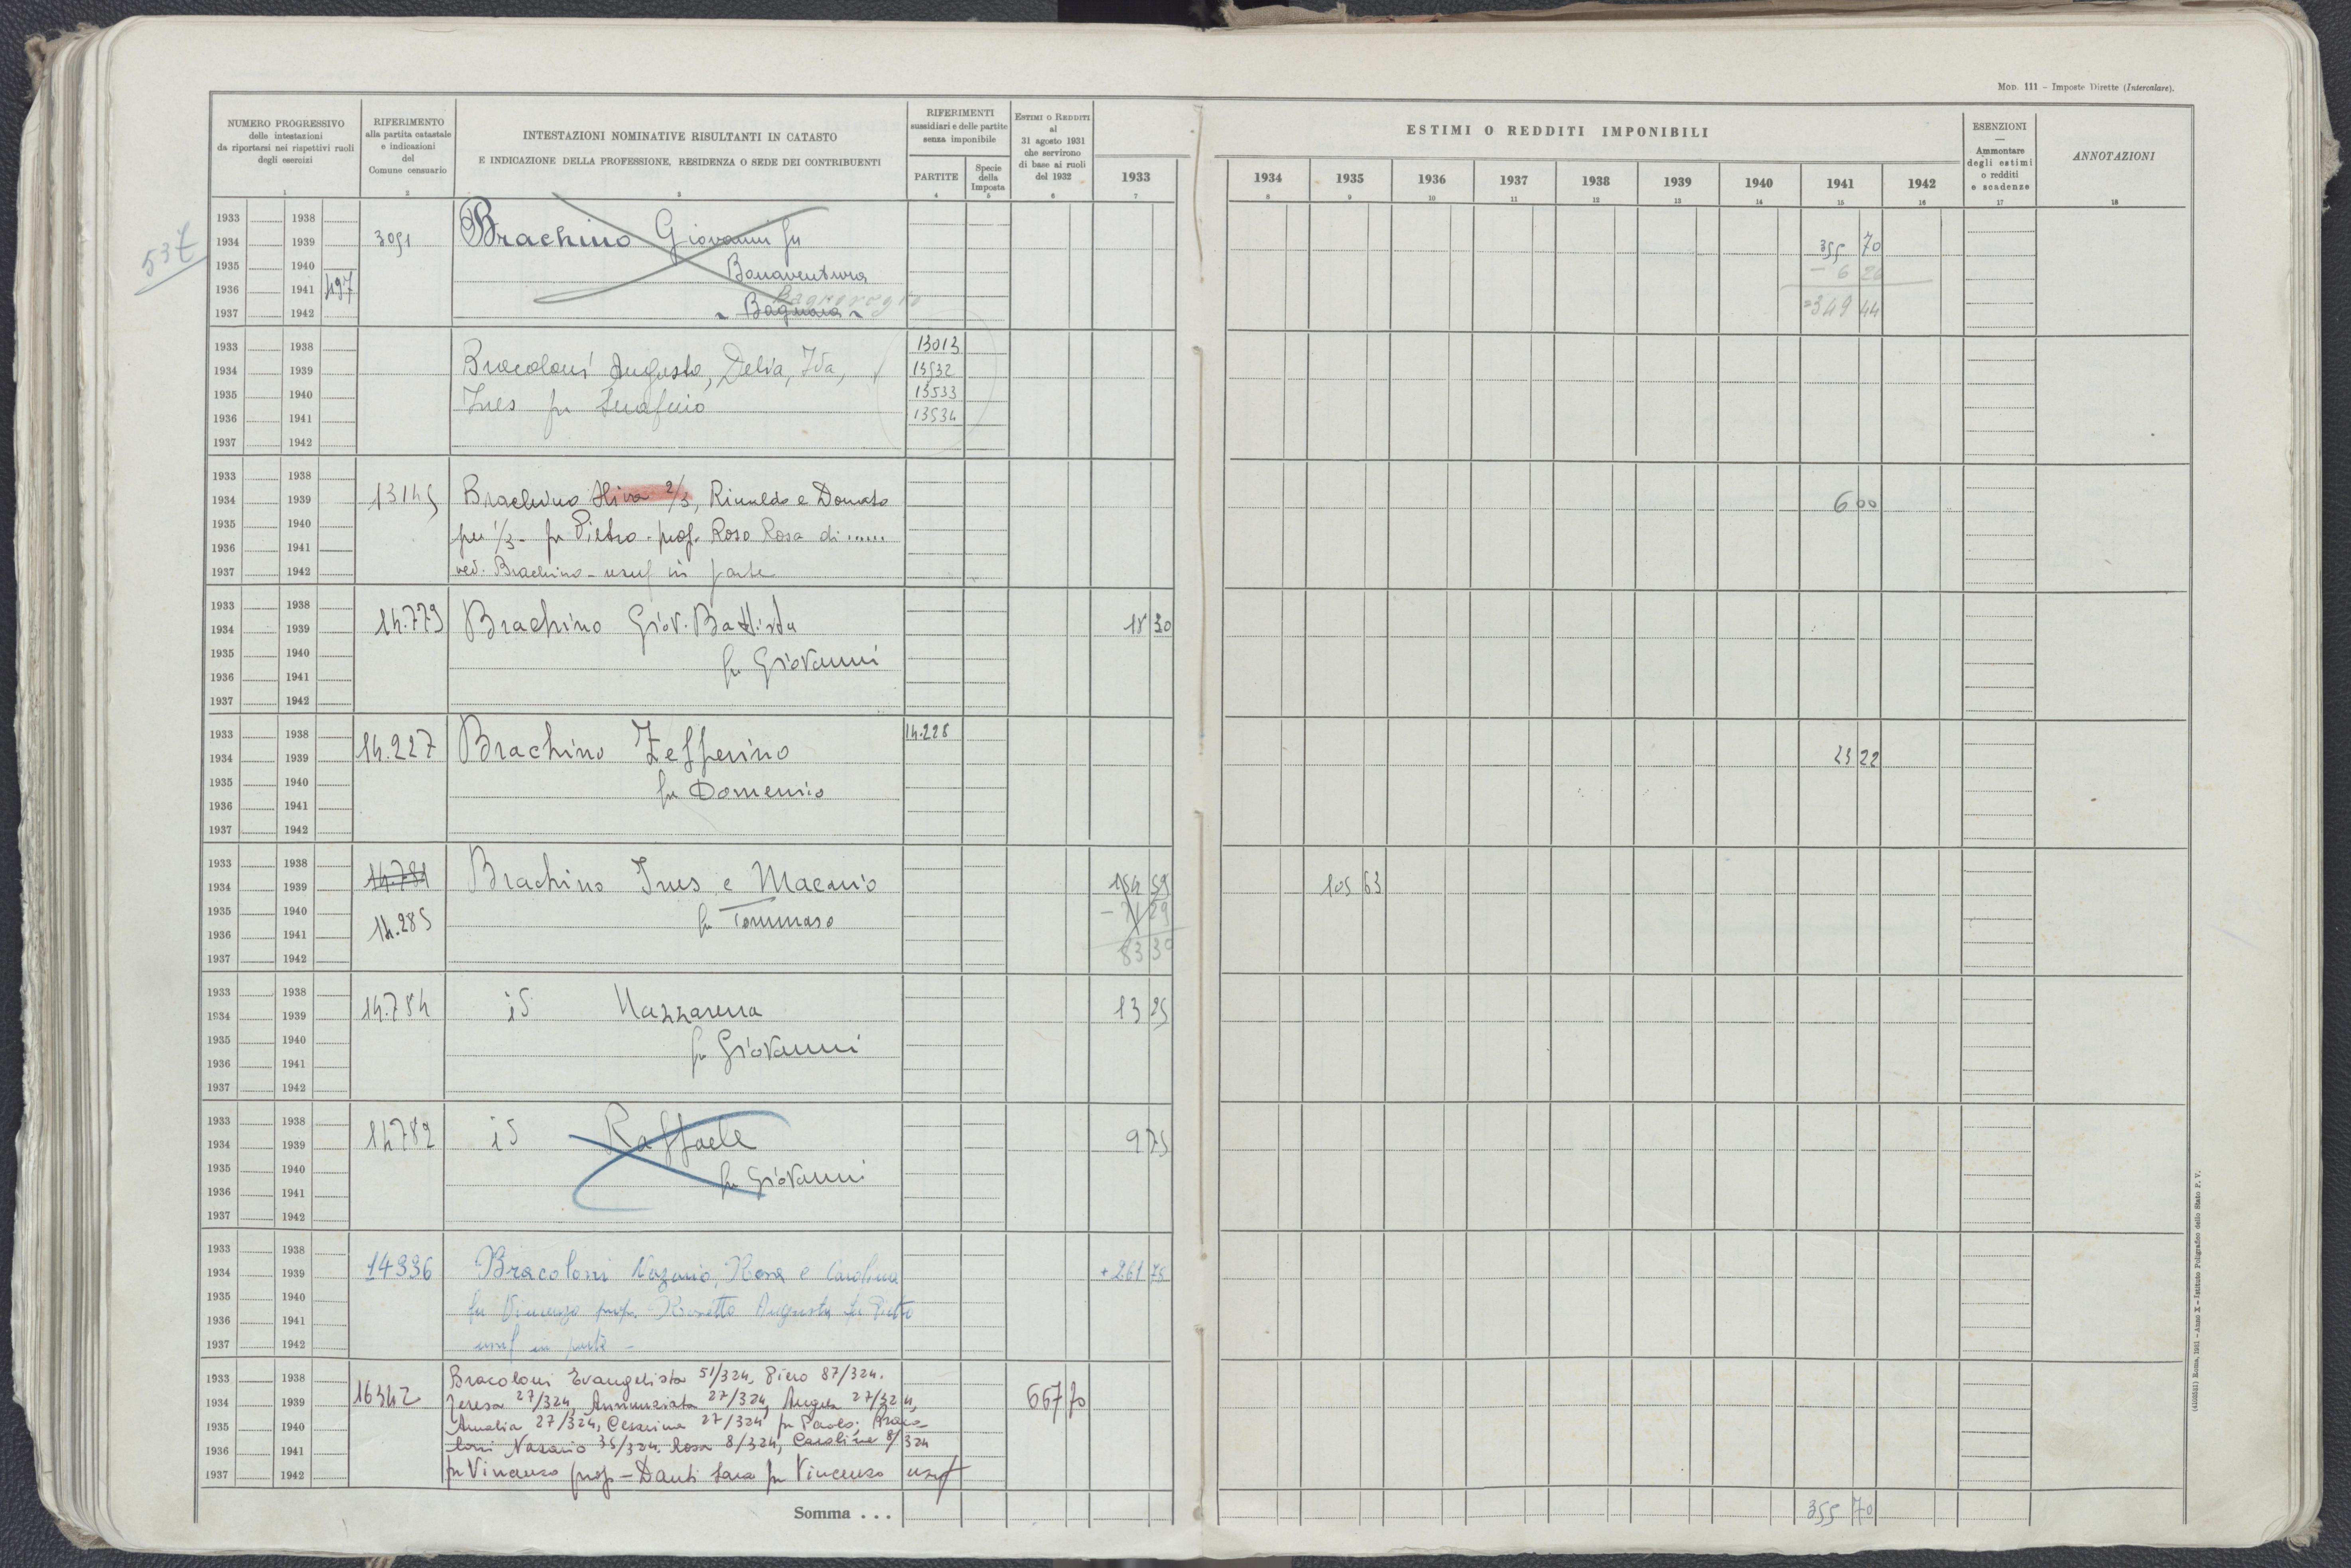 MOD. 111 - Imposte Dirette (Intercalare).
NUMERO PROGRESSIVO
delle intestazioni
da riportarsi nei rispettivi ruoli
degli esercizi
1
RIFERIMENTO
alla partita catastale
e indicazioni
del
Comune censuario
2
INTESTAZIONI NOMINATIVE RISULTANTI IN CATASTO
E INDICAZIONE DELLA PROFESSIONE, RESIDENZA O SEDE DEI CONTRIBUENTI
3
RIFERIMENTI
sussidiari e delle partite
senza imponibile
PARTITE
4
Specie
della
Imposta
5
ESTIMI O REDDITI
al
31 agosto 1931
che servirono
di base ai ruoli
del 1932
6
1933
7
ESTIMI O REDDITI IMPONIBILI
1934 1935 1936 1937 1938 1939 1940 1941 1942
8 9 10 11 12 13 14 15 16
ESENZIONI
—
Ammontare
degli estimi
o redditi
e scadenze
17
ANNOTAZIONI
18
537
1933 1938
1934 1939 3091 Brachino Giovanni fu 355 70
1935 1940 Bonaventura - 6 26
1936 1941 497 Bagnoregio
1937 1942 Bagnaia =349 44
1933 1938 13013
1934 1939 Bracoloni Augusto, Delia, Ida, 13532
1935 1940 Ines fu Serafino 13533
1936 1941 13534
1937 1942
1933 1938
1934 1939 13145 Brachino 2/3, Rinaldo e Donato 600
1935 1940
1936 1941 per 1/3 - fu Pietro - prop. Roso Rosa di ......
1937 1942 ved. Brachino - usuf in parte
1933 1938
1934 1939 14.779 Brachino Giov. Battista 18 30
1935 1940 fu Giovanni
1936 1941
1937 1942
1933 1938 14.228
1934 1939 14.227 Brachino Zefferino 23 22
1935 1940 fu Domenico
1936 1941
1937 1942
1933 1938
1934 1939 14.781 Brachino Ines e 154 59 105 63
1935 1940 fu Tommaso - 71 29
1936 1941 14.285
1937 1942 83 30
1933 1938
1934 1939 14.784 id Nazzarena 13 25
1935 1940 fu Giovanni
1936 1941
1937 1942
1933 1938
1934 1939 14782 id Raffaele 9 75
1935 1940
1936 1941 fu Giovanni
1937 1942
1933 1938
1934 1939 14336 Bracoloni Nazario, Rosa e Carolina + 261 75
1935 1940
1936 1941 fu Vincenzo prop. - Augusta fu Pietro
1937 1942 usuf in parte -
1933 1938 Bracoloni Evangelista 51/324, Piero 87/324.
1934 1939 16342 Teresa 27/324, Annunziata 27/324, Angela 27/324, 667 70
1935 1940 Amalia 27/324, Cesarina 27/324 fu Paolo; Braco-
1936 1941 loni Nazario 35/324, Rosa 8/324, Carolina 8/324
1937 1942 fu Vincenzo prop - Danti Sara fu Vincenzo usuf
Somma . . . 355 70
(4103531) Roma, 1931 - Anno X - Istituto Poligrafico dello Stato P. V.